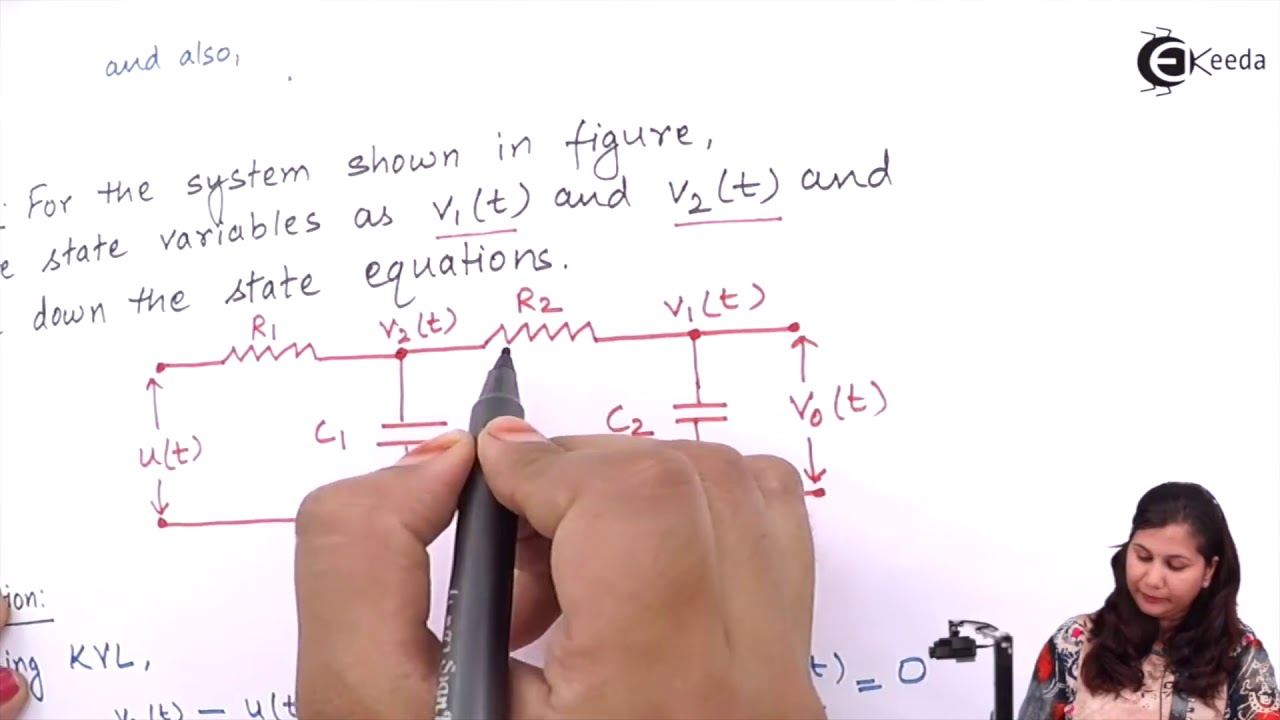 and also,
Keeda
: For the system shown in figure,
state variables as v₁(t) and v₂(t) and
down the state equations.
R₁ v₂(t) R₂ v₁(t)
u(t) C₁ C₂ v₀(t)
KVL,
- u(t = 0